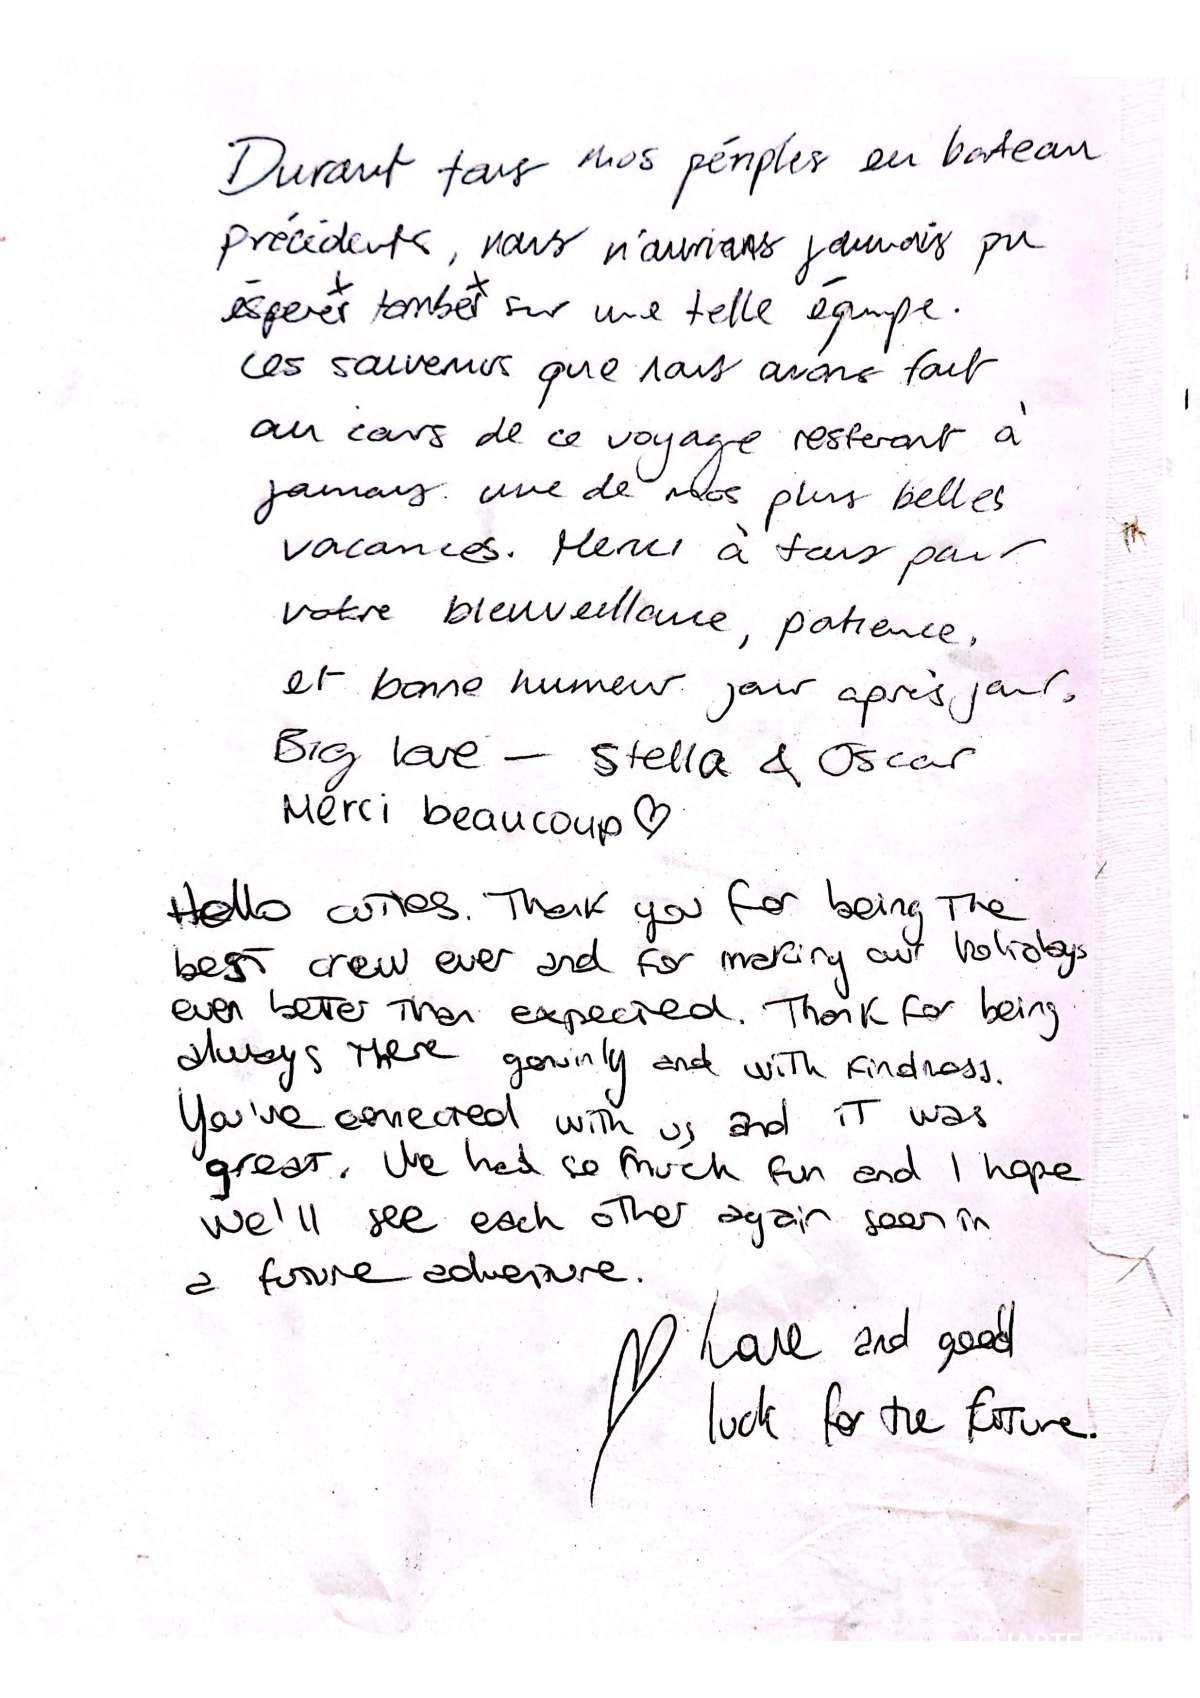 Durant tous mos périples en bateau
précédents, nous n'aurions jamais pu
éspérer tomber sur une telle équipe.
Les souvenirs que nous avons fait
au cours de ce voyage resteront à
jamais une de nos plus belles
vacances. Merci à tous pour
votre bienveillance, patience,
et bonne humeur jour après jour.
Big love — Stella & Oscar
Merci beaucoup♡
Hello cuties. Thank you for being the
best crew ever and for making our holidays
even better than expected. Thank for being
always there genuinly and with kindness.
You've conected with us and it was
great. We had so much fun and I hope
we'll see each other again soon in
a future adventure.
Love and good
luck for the future.